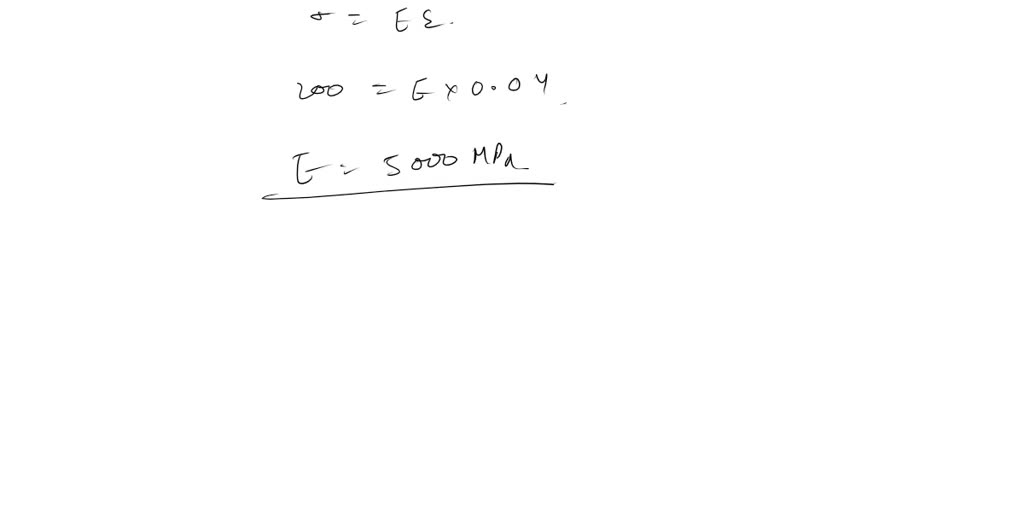 σ = E ε.
200 = E × 0.04
E = 5000 MPa